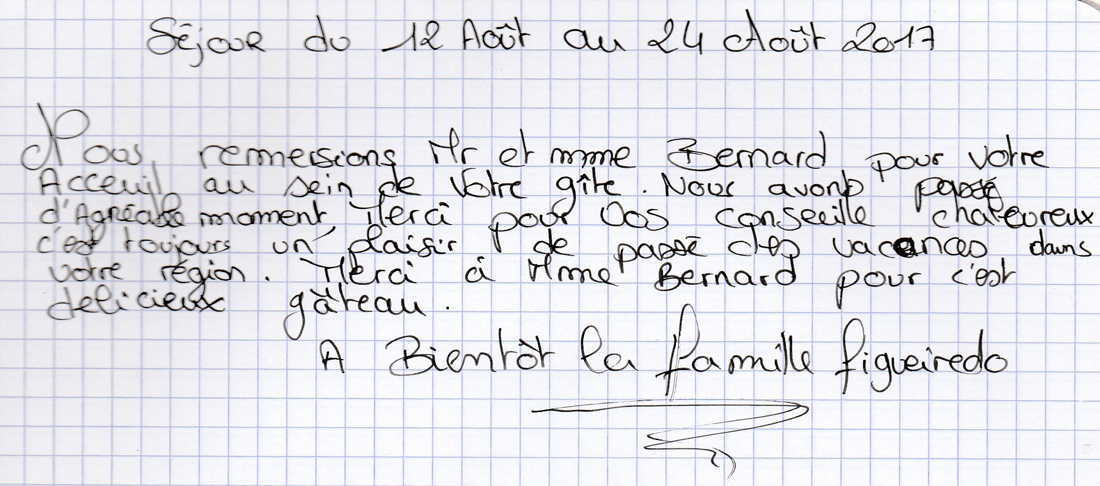 Séjour du 12 Août au 24 Août 2017
Nous, remmersions Mr et mme Bernard pour votre
Acceuil au sein de votre gîte. Nous avons passé
d'Agréable moment, Merci pour Vos conseille chaleureux
c'est toujours un plaisir de passé des vacances dans
votre région. Merci à Mme Bernard pour c'est
delicieux gâteau.
A Bientôt la famille figueiredo